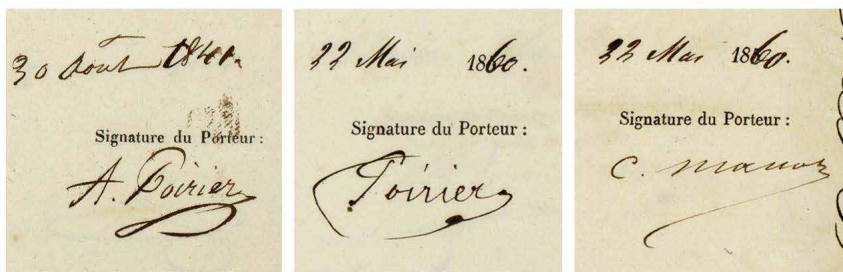 30 Août 1841.
Signature du Porteur :
A. Poirier
22 Mai 1860.
Signature du Porteur :
Poirier
22 Mai 1860.
Signature du Porteur :
C.